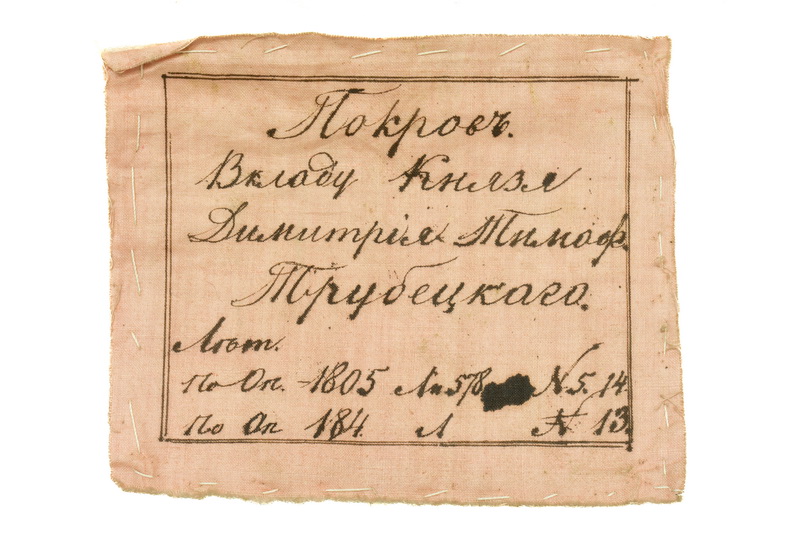 Покровъ.
Вкладу Князя
Димитрія Тимоф.
Трубецкаго.
Лѣт.
по Оп. 1805 Л. 578. N. 5. 14
по Оп 184 Л N 13.